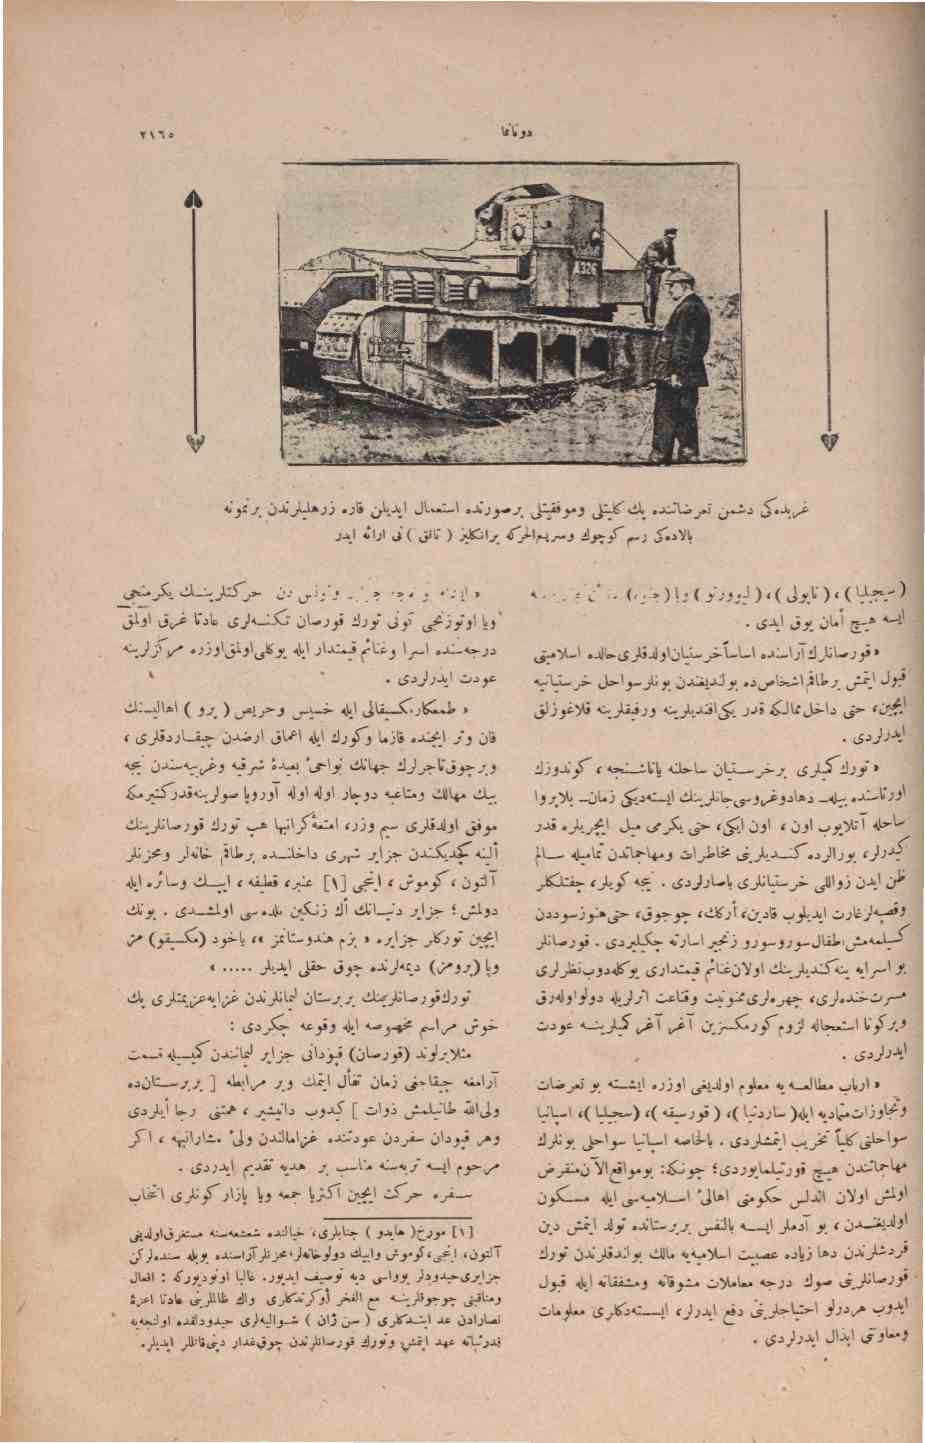 دوناما
٢١٦٥
A326
غربده‌كی دشمن تعرضاتنده پك كليتلی وموفقيتلی برصورتده استعمال ايديلن قاره زرهليلرندن برنمونه
بالاده‌كی رسم كوچوك وسريع‌الحركه برانكليز ( تانق ) نی ارائه ايدر
( سيجيليا ) ، ( ناپولی ) ، ( ليوورنو ) ويا ( جنوه )
ايسه هيچ أمان يوق ايدی .
« قورصانلرك آراسنده اساساً خرستيان اولدقلری حالده اسلاميتی
قبول ايتمش برطاقم اشخاص ده بولنديغندن بونلر سواحل خرستيانيه
ايچين، حتی داخل ممالكه قدر يكی افنديلرينه ورفيقلرينه قلاغوزلق
ايدرلردی .
« تورك كميلری برخرستيان ساحلنه ياناشنجه ، كوندوزك
اورتاسنده بيله ـ دها دوغروسی جانلرينك ايسته‌ديكی زمان ـ بلاپروا
ساحله آتلايوب اون ، اون ايكی، حتی يكرمی ميل ايچريلره قدر
كيدرلر، بورالرده كنديلرينی مخاطرات ومهاجماتدن تماميله سالم
ظن ايدن زواللی خرستيانلری باصارلردی . نيجه كويلر، چفتلكلر
وقصبه‌لر غارت ايديلوب قادين، أركك، چوجوق، حتی هنوز سوددن
كسيلمه‌مش اطفال سورو سورو زنجير اسارته چكيليردی . قورصانلر
بو اسرايه ينه كنديلرينك اولان غنائم قيمتداری يوكله‌دوب نظرلری
مسرت خنده‌لری، چهره‌لری ممنونيت وقناعت اثرلريله دولو اوله‌رق
ويركونا استعجاله لزوم كورمكسزين آغر آغر كميلرينه عودت
ايدرلردی .
« ارباب مطالعه يه معلوم اولديغی اوزره ايشته بو تعرضات
وتجاوزات متماديه ايله ( ساردنيا )، ( قورسيقه )، ( سجيليا )، اسپانيا
سواحلنی كلياً تخريب ايتمشلردی . بالخاصه اسپانيا سواحلی بونلرك
مهاجماتندن هيچ قورتيلمايوردی؛ چونكه: بومواقع الآن منقرض
اولمش اولان اندلس حكومتی اهالیٔ اسلاميه‌سی ايله مسكون
اولديغندن ، بو آدملر ايسه بالنفس بربرستانده تولد ايتمش دين
قردشلرندن دها زياده عصبيت اسلاميه‌يه مالك بولندقلرندن تورك
قورصانلرينی صوك درجه معاملات مشوقانه ومشفقانه ايله قبول
ايدوب هردرلو احتياجلرينی دفع ايدرلر، ايسته‌دكلری معلومات
ومعاونتی ابذال ايدرلردی .
حركتلرينك يكرمنجی
ويا اوتوزنجی كونی تورك قورصان تكنه‌لری عادتا غرق اولمق
درجه‌سنده اسرا وغنائم قيمتدار ايله يوكلی اولمق اوزره مركزلرينه
عودت ايدرلردی .
« طمعكار مكسيقالی ايله خسيس وحريص ( پرو ) اهاليسنك
قان وتر ايچنده قازما وكورك ايله اعماق ارضدن چيقاردقلری ،
وبرچوق تاجرلرك جهانك نواحیٔ بعيدهٔ شرقيه وغربيه‌سندن نيجه
بيك مهالك ومتاعبه دوچار اوله اوله آوروپا صولرينه قدر كتيرمكه
موفق اولدقلری سيم وزر، امتعهٔ كرانبها هپ تورك قورصانلرينك
ألينه كچديكندن جزاير شهری داخلنده برطاقم خانه‌لر ومخزنلر
آلتون ، كوموش ، اينجی [١] عنبر، قطيفه ، ايپك وسائره ايله
دولمش ؛ جزاير دنيانك أك زنكين بلده‌سی اولمشدی . بونك
ايچين توركلر جزايره « بزم هندوستانمز »، ياخود (مكسيقو) مز
ويا (پرومز) ديمه‌لرنده چوق حقلی ايديلر ..... »
تورك قورصانلرينك بربرستان ليمانلرندن غزايه عزيمتلری پك
خوش مراسم مخصوصه ايله وقوعه چكردی :
مثلا برلوند (قورصان) قپودانی جزاير ليمانندن كميسيله قسمت
آرامغه چيقاجغی زمان تفأل ايتمك وبر مرابطه [ بربرستان ده
ولی‌الله طانيلمش ذوات ] كيدوب دانيشير ، همتنی رجا أيلردی
وهر قپودان سفردن عودتنده غزامالندن ولیٔ مشاراليهه ، اكر
مرحوم ايسه تربه‌سنه مناسب بر هديه تقديم ايدردی .
سفره حركت ايچين اكثريا جمعه ويا پازار كونلری انتخاب
[١] مورخ ( هايدو ) جنابلری، خيالنده شعشعه‌سنه مستغرق اولديغی
آلتون، اينجی، كوموش وايپك دولو خانه‌لر، مخزنلر آراسنده بويله سنده‌لركن
جزايری حيدودلر يوواسی ديه توصيف ايديور. غالبا اونوديوركه : افعال
ومناقبنی چوجوقلرينه مع الفخر أوكرتدكلری واك ظالملرينی عادتا اعزهٔ
نصارادن عد ايتدكلری ( سن ژان ) شواليه‌لری حيدودلقده اولنجه‌يه
قدر ثباته عهد ايتمش وتورك قورصانلرندن چوق غدار دينی قاتللر ايديلر.